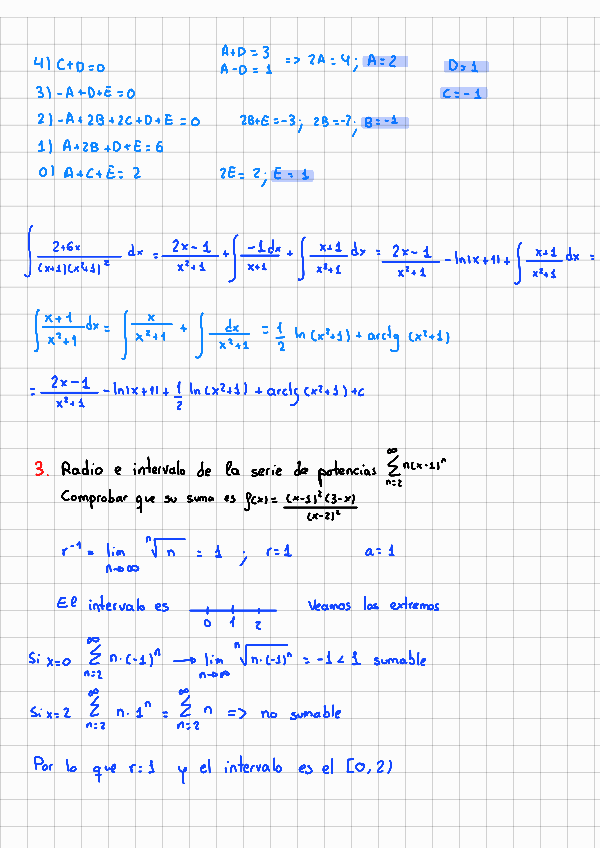 4) C+D=0
A+D=3
A-D=1
=> 2A=4; A=2
D=1
3) -A+D+E=0
C=-1
2) -A+2B+2C+D+E=0
2B+E=-3; 2B=-2; B=-1
1) A+2B+D+E=6
0) A+C+E=2
2E=2; E=1
∫ (2+6x)/((x+1)(x²+1)²) dx = (2x-1)/(x²+1) + ∫ (-1dx)/(x+1) + ∫ (x+1)/(x²+1) dx = (2x-1)/(x²+1) - ln|x+1| + ∫ (x+1)/(x²+1) dx =
∫ (x+1)/(x²+1) dx = ∫ x/(x²+1) + ∫ dx/(x²+1) = 1/2 ln(x²+1) + arctg (x²+1)
= (2x-1)/(x²+1) - ln|x+1| + 1/2 ln(x²+1) + arctg(x²+1) + c
3. Radio e intervalo de la serie de potencias ∑_{n=2}^{∞} n(x-1)ⁿ
Comprobar que su suma es f(x)= ((x-1)²(3-x))/((x-2)²)
r⁻¹ = lim_{n→∞} ⁿ√n = 1 ; r=1 a=1
El intervalo es 0 1 2 Veamos los extremos
Si x=0 ∑_{n=2}^{∞} n·(-1)ⁿ → lim_{n→∞} ⁿ√(n·(-1)ⁿ) = -1 < 1 sumable
Si x=2 ∑_{n=2}^{∞} n·1ⁿ = ∑_{n=2}^{∞} n => no sumable
Por lo que r=1 y el intervalo es el [0,2)